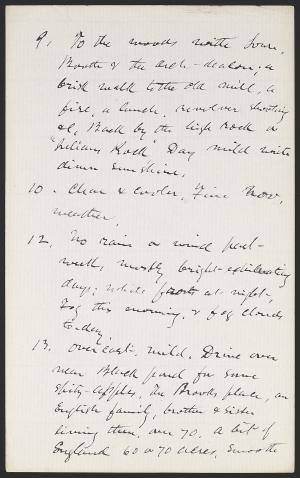 9. To the woods with
Booth & the arch-deacon; a
brisk walk to the old mill, a
fire, a lunch, revolver shooting
&c, Back by the high rock or
"Julians Rock" Day mild with
dim sunshine.
10. Clear & cooler, Fine Nov.
weather.
12. No rain or wind past
week, mostly bright exhilerating
days; white frosts at night,
Fog this morning, & fog clouds
to-day.
13. Overcast, mild. Drive over
near Black pond for some
apples, The Brooks place, an
English family, brother & sister
living there, over 70. a bit of
England 60 or 70 acres, smooth